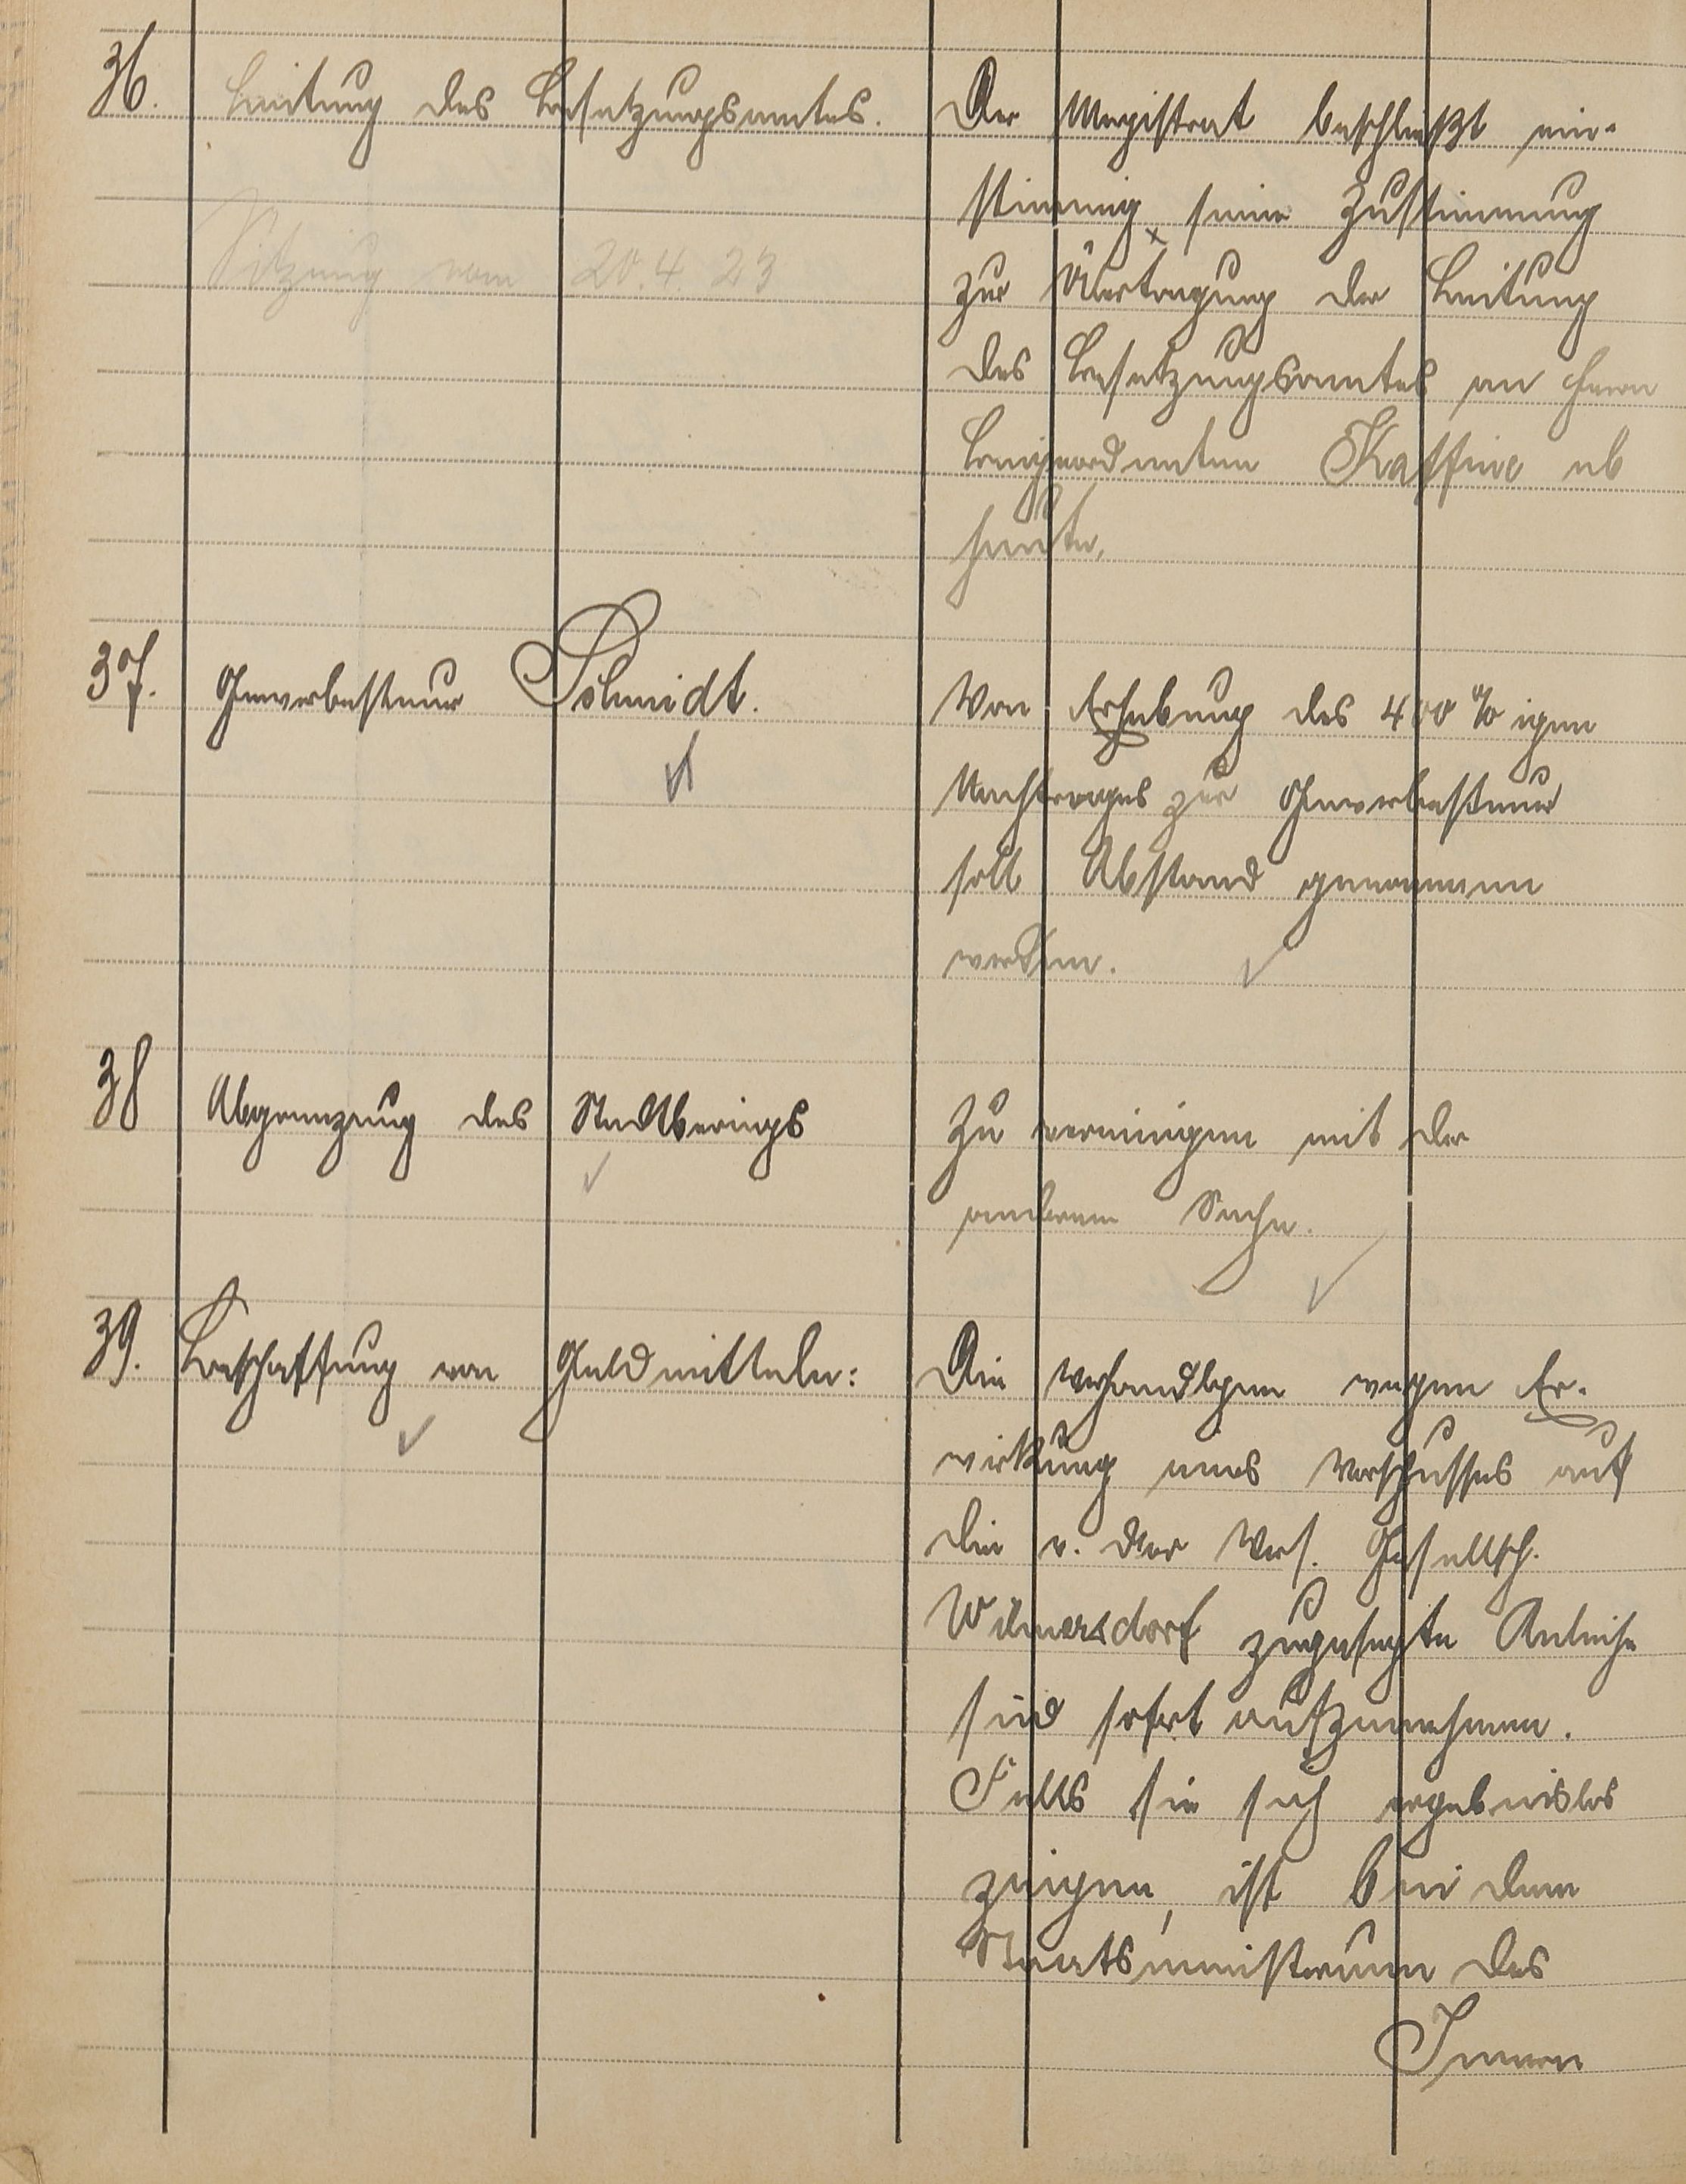 36. Leitung des Besatzungsamtes. Der Magistrat beschließt ein-
stimmig seine Zustimmung
Sitzung vom 20.4.23
zur Übertragung der Leitung
des Besatzungsamtes an Herrn
Beigeordneten Kaffine ab
heute.
37. Gewerbesteuer Schmidt. Von Erhebung des 400 % igen
Nachtrages zur Gewerbesteuer
soll Abstand genommen
werden.
38 Abgrenzung des Stadtberings Zu vereinigen mit der
anderen Sache.
39. Beschaffung von Geldmitteln: Die Verhandlgen wegen Er-
wirkung eines Vorschusses auf
die v. der Vers. Gesellsch.
Wilmersdorf zugesagte Anleihe
sind sofort aufzunehmen.
Falls sie sich ergebnislos
zeigen, ist bei dem
Staatsministerium des
Innern